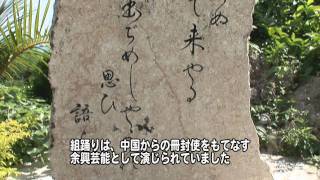 ぬ
て来やる
あぢめしやべ
思ひ
語
組踊りは、中国からの冊封使をもてなす
余興芸能として演じられていました